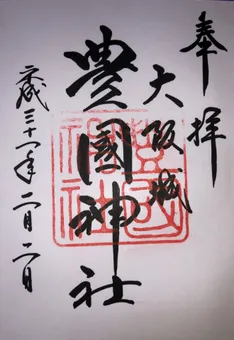 奉拝
大阪城
豊國神社
平成三十一年二月二日